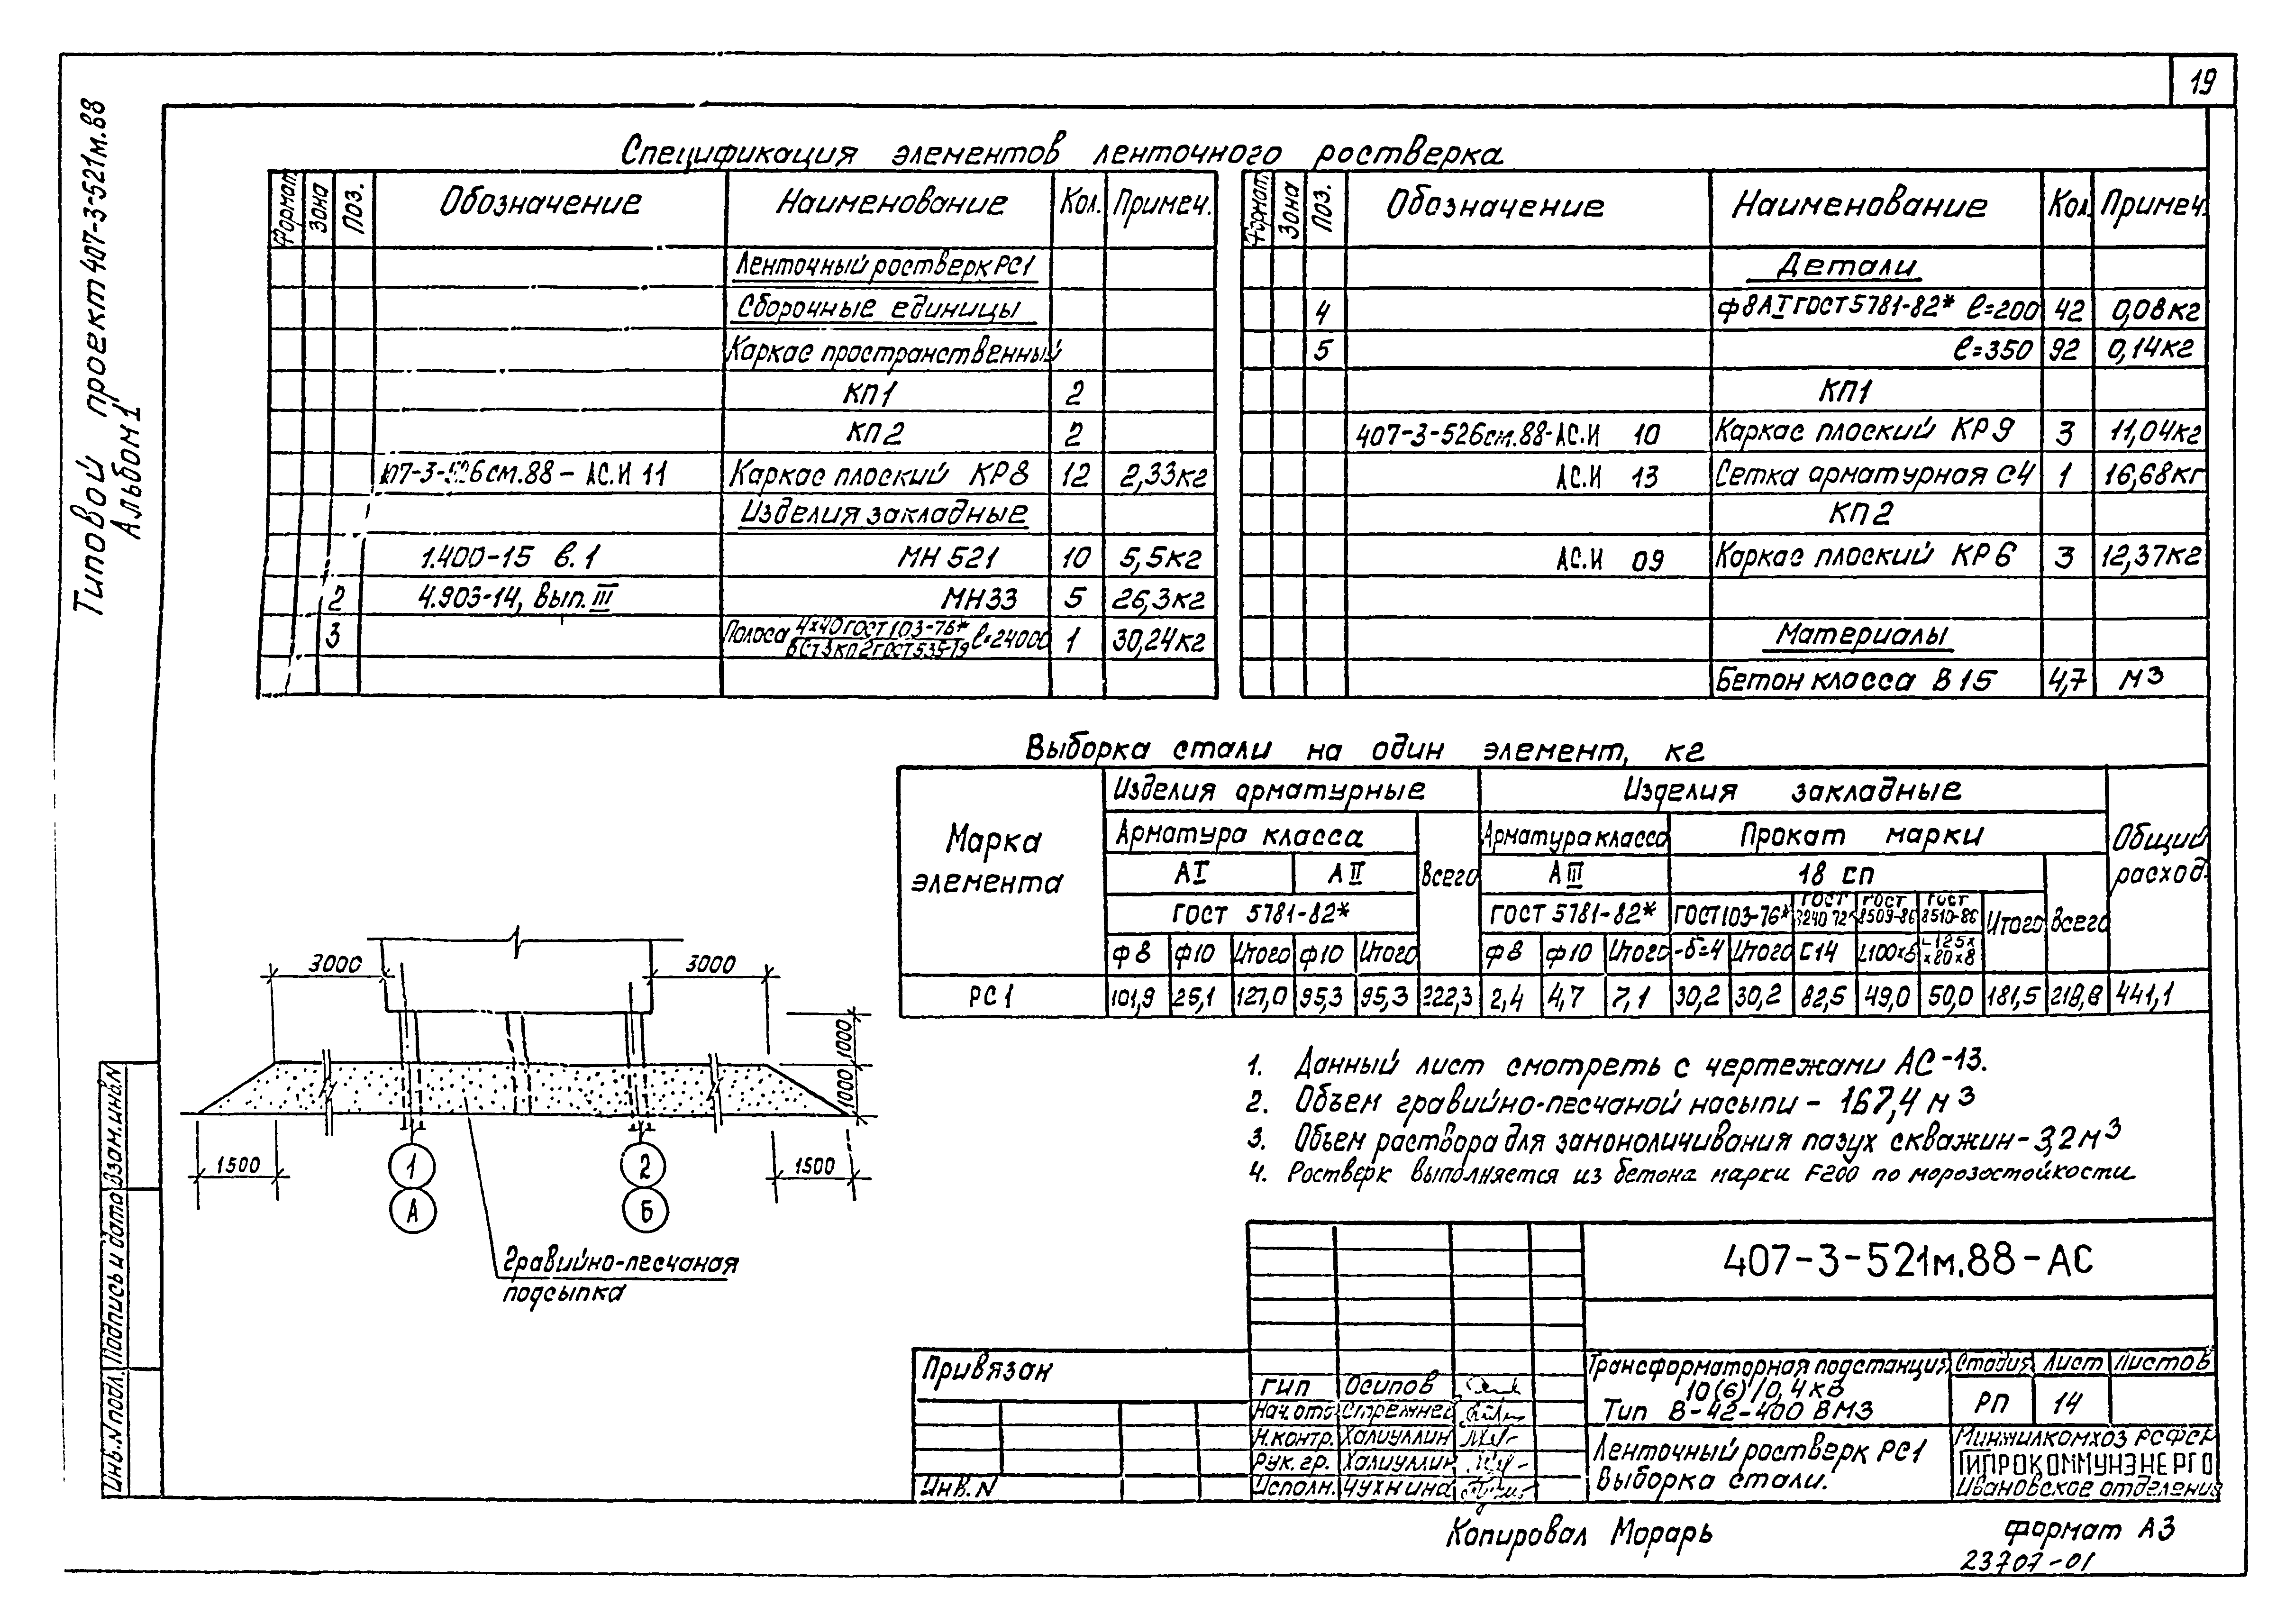 19
Типовой проект 407-3-521м.88
Альбом 1
Спецификация элементов ленточного ростверка
Формат Зона Поз. Обозначение Наименование Кол. Примеч.
Ленточный ростверк РС1
Сборочные единицы
Каркас пространственный
КП1 2
КП2 2
407-3-526см.88-АС.И 11 Каркас плоский КР8 12 2,33кг
Изделия закладные
1.400-15 в.1 МН 521 10 5,5кг
2 4.903-14, Вып. III МН33 5 26,3кг
3 Полоса 4х40 ГОСТ 103-76* ℓ=24000 1 30,24кг
ВСт3кп2 ГОСТ 535-79
Формат Зона Поз. Обозначение Наименование Кол. Примеч.
Детали
4 ф8АI ГОСТ 5781-82* ℓ=200 42 0,08кг
5 ℓ=350 92 0,14кг
КП1
407-3-526см.88-АС.И 10 Каркас плоский КР9 3 11,04кг
АС.И 13 Сетка арматурная С4 1 16,68кг
КП2
АС.И 09 Каркас плоский КР6 3 12,37кг
Материалы
Бетон класса В15 4,7 м3
Выборка стали на один элемент, кг
Марка элемента Изделия арматурные Изделия закладные Общий расход
Арматура класса Всего Арматура класса Прокат марки
АI АII АIII 18 сп Всего
ГОСТ 5781-82* ГОСТ 5781-82* ГОСТ 103-76* ГОСТ 8240-72* ГОСТ 8509-86 ГОСТ 8510-86 Итого
ф8 ф10 Итого ф10 Итого ф8 ф10 Итого -δ=4 Итого С14 L100х8 L125х80х8
РС1 101,9 25,1 127,0 95,3 95,3 222,3 2,4 4,7 7,1 30,2 30,2 82,5 49,0 50,0 181,5 218,8 441,1
3000 3000
1000
1000
1500 1 2 1500
А Б
Гравийно-песчаная
подсыпка
1. Данный лист смотреть с чертежами АС-13.
2. Объем гравийно-песчаной насыпи - 167,4 м3
3. Объем раствора для замоноличивания пазух скважин - 3,2 м3
4. Ростверк выполняется из бетона марки F200 по морозостойкости
407-3-521м.88-АС
Привязан
Инв. N
ГИП Осипов
Нач. отд. Стрежнев
Н.контр. Халиуллин
Рук. гр. Халиуллин
Исполн. Чухнина
Трансформаторная подстанция
10(6)/0,4кВ
Тип В-42-400 ВМЗ
Стадия Лист Листов
РП 14
Ленточный ростверк РС1
Выборка стали.
Минжилкомхоз РСФСР
ГИПРОКОММУНЭНЕРГО
Ивановское отделение
Инв. N подл. Подпись и дата Взам. инв. N
Копировал Морарь
формат А3
23707-01